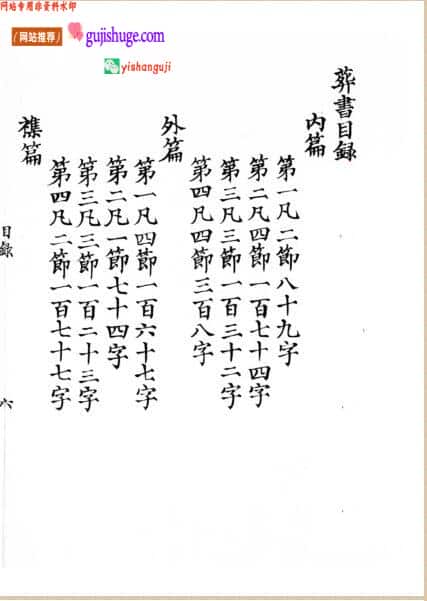 网站专用非资料水印
（网站推荐）
gujishuge.com
yishanguji
葬書目録
内篇
第一凡二節八十九字
第二凡四節一百七十四字
第三凡三節一百三十二字
第四凡四節三百八字
外篇
第一凡四節一百六十七字
第二凡一節七十四字
第三凡三節一百二十三字
第四凡二節一百七十七字
襍篇
目録
六